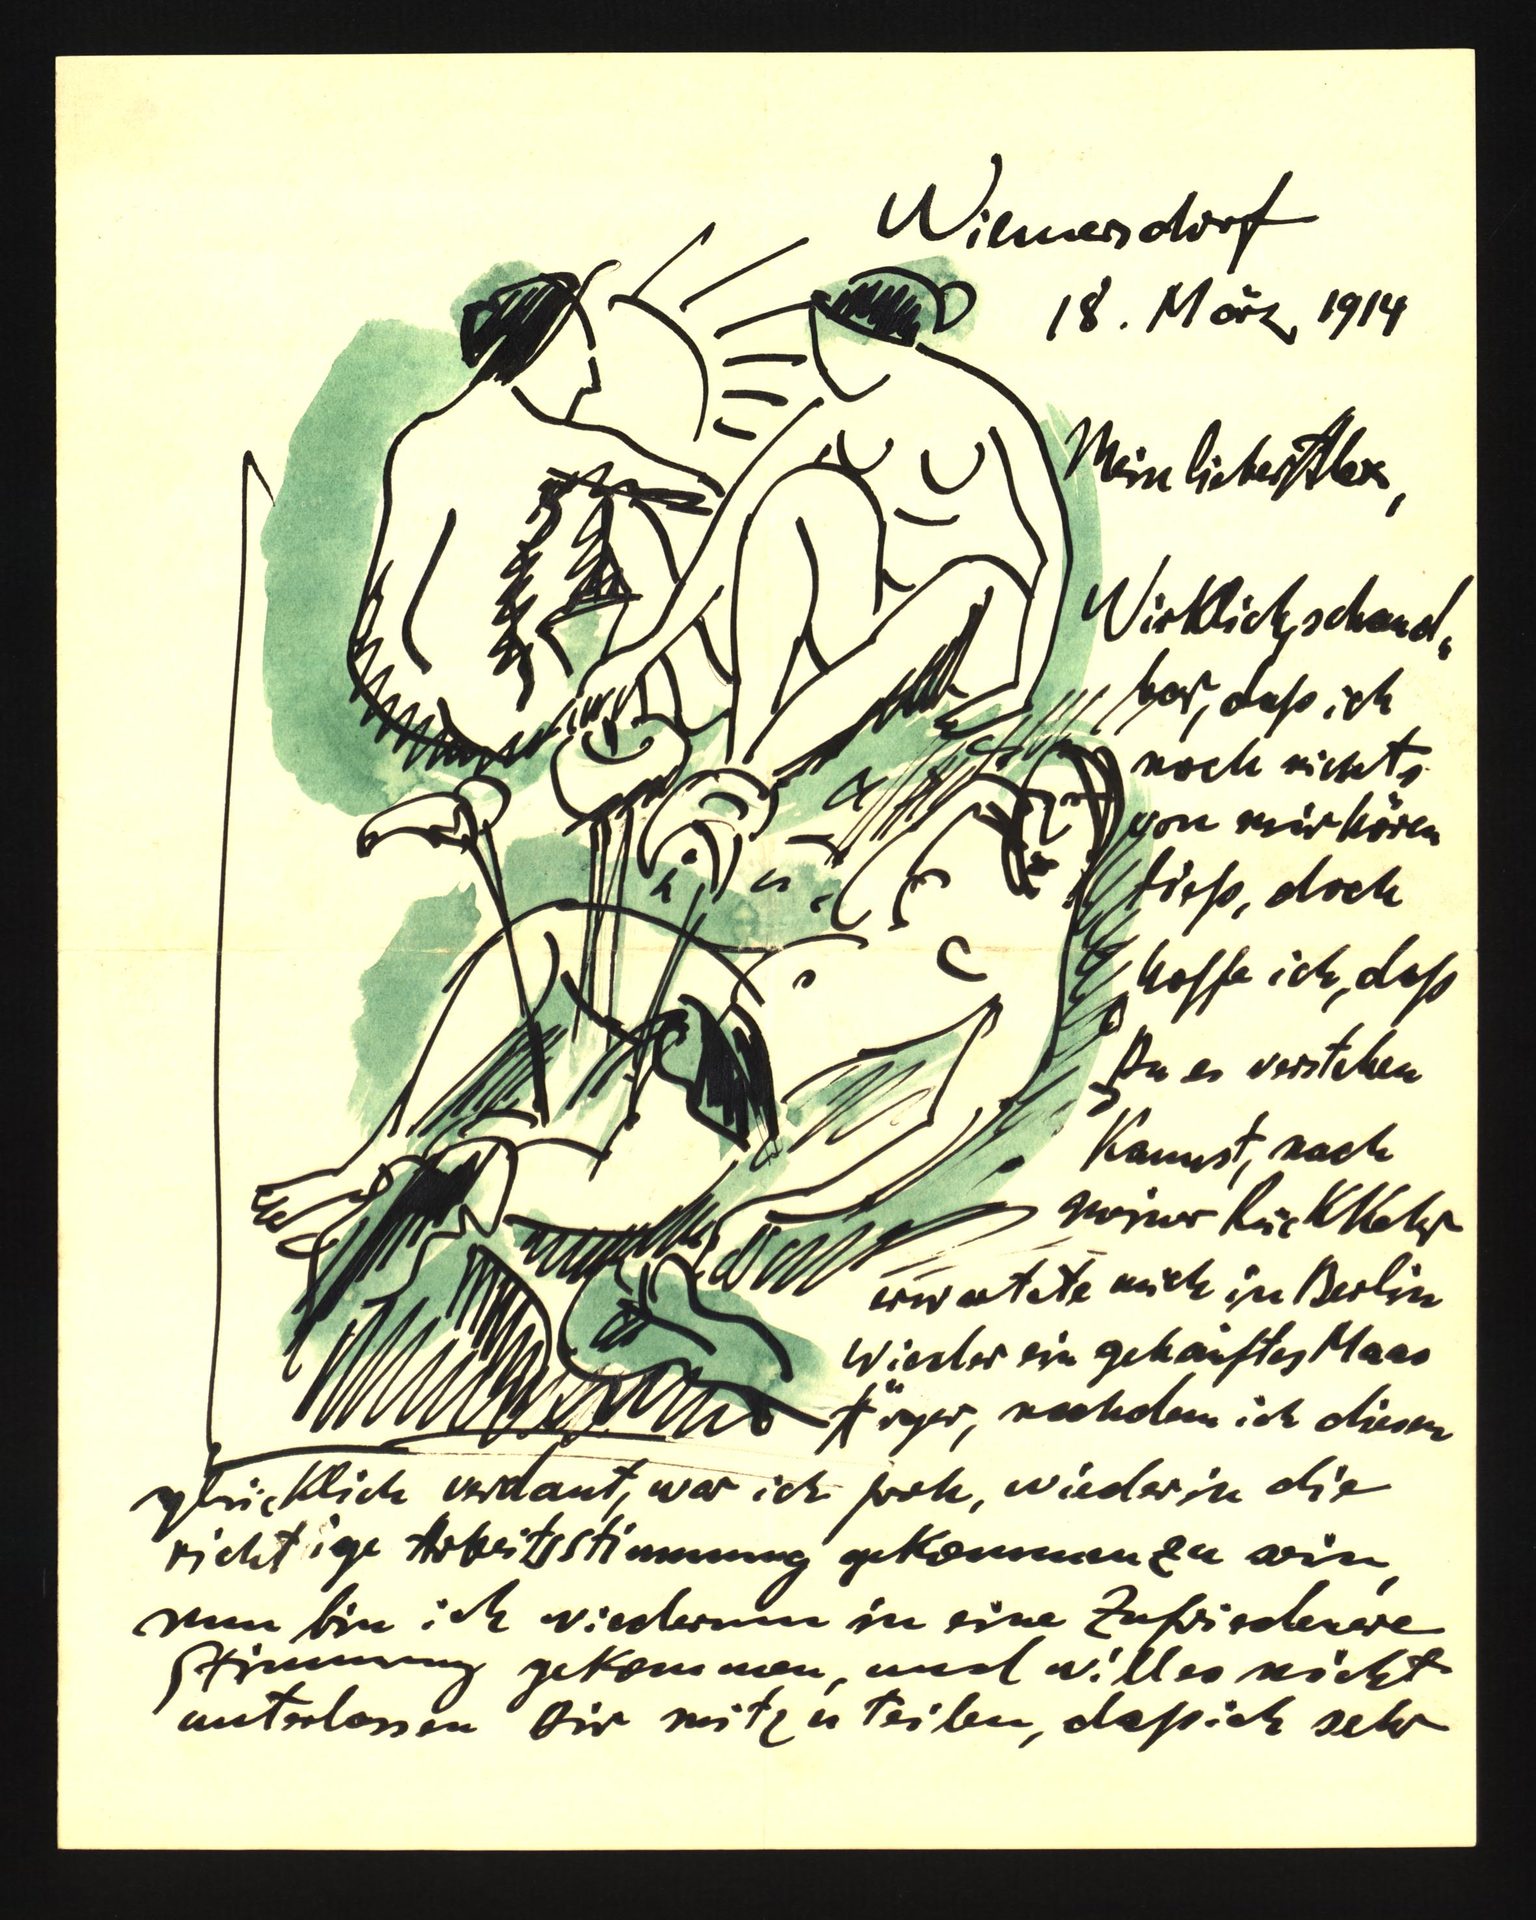 Wilmersdorf
18. März 1914
Mein lieber Alex,
Wirklich, schand„
bar, daß ich
noch nichts
von mir hören
ließ, doch
hoffe ich, daß
Du es verstehen
Kannst, nach
meiner RückKehr
erwartete mich in Berlin
wieder ein gehäuftes Maas
Ärger, nachdem ich diesen
glücKlich verdaut, war ich froh, wieder in die
richtige Arbeitsstimmung geKommen zu sein,
nun bin ich wiederum in eine Zufriedenere
Stimmung geKommen, und will es nicht
unterlassen Dir mitzuteilen, daß ich sehr